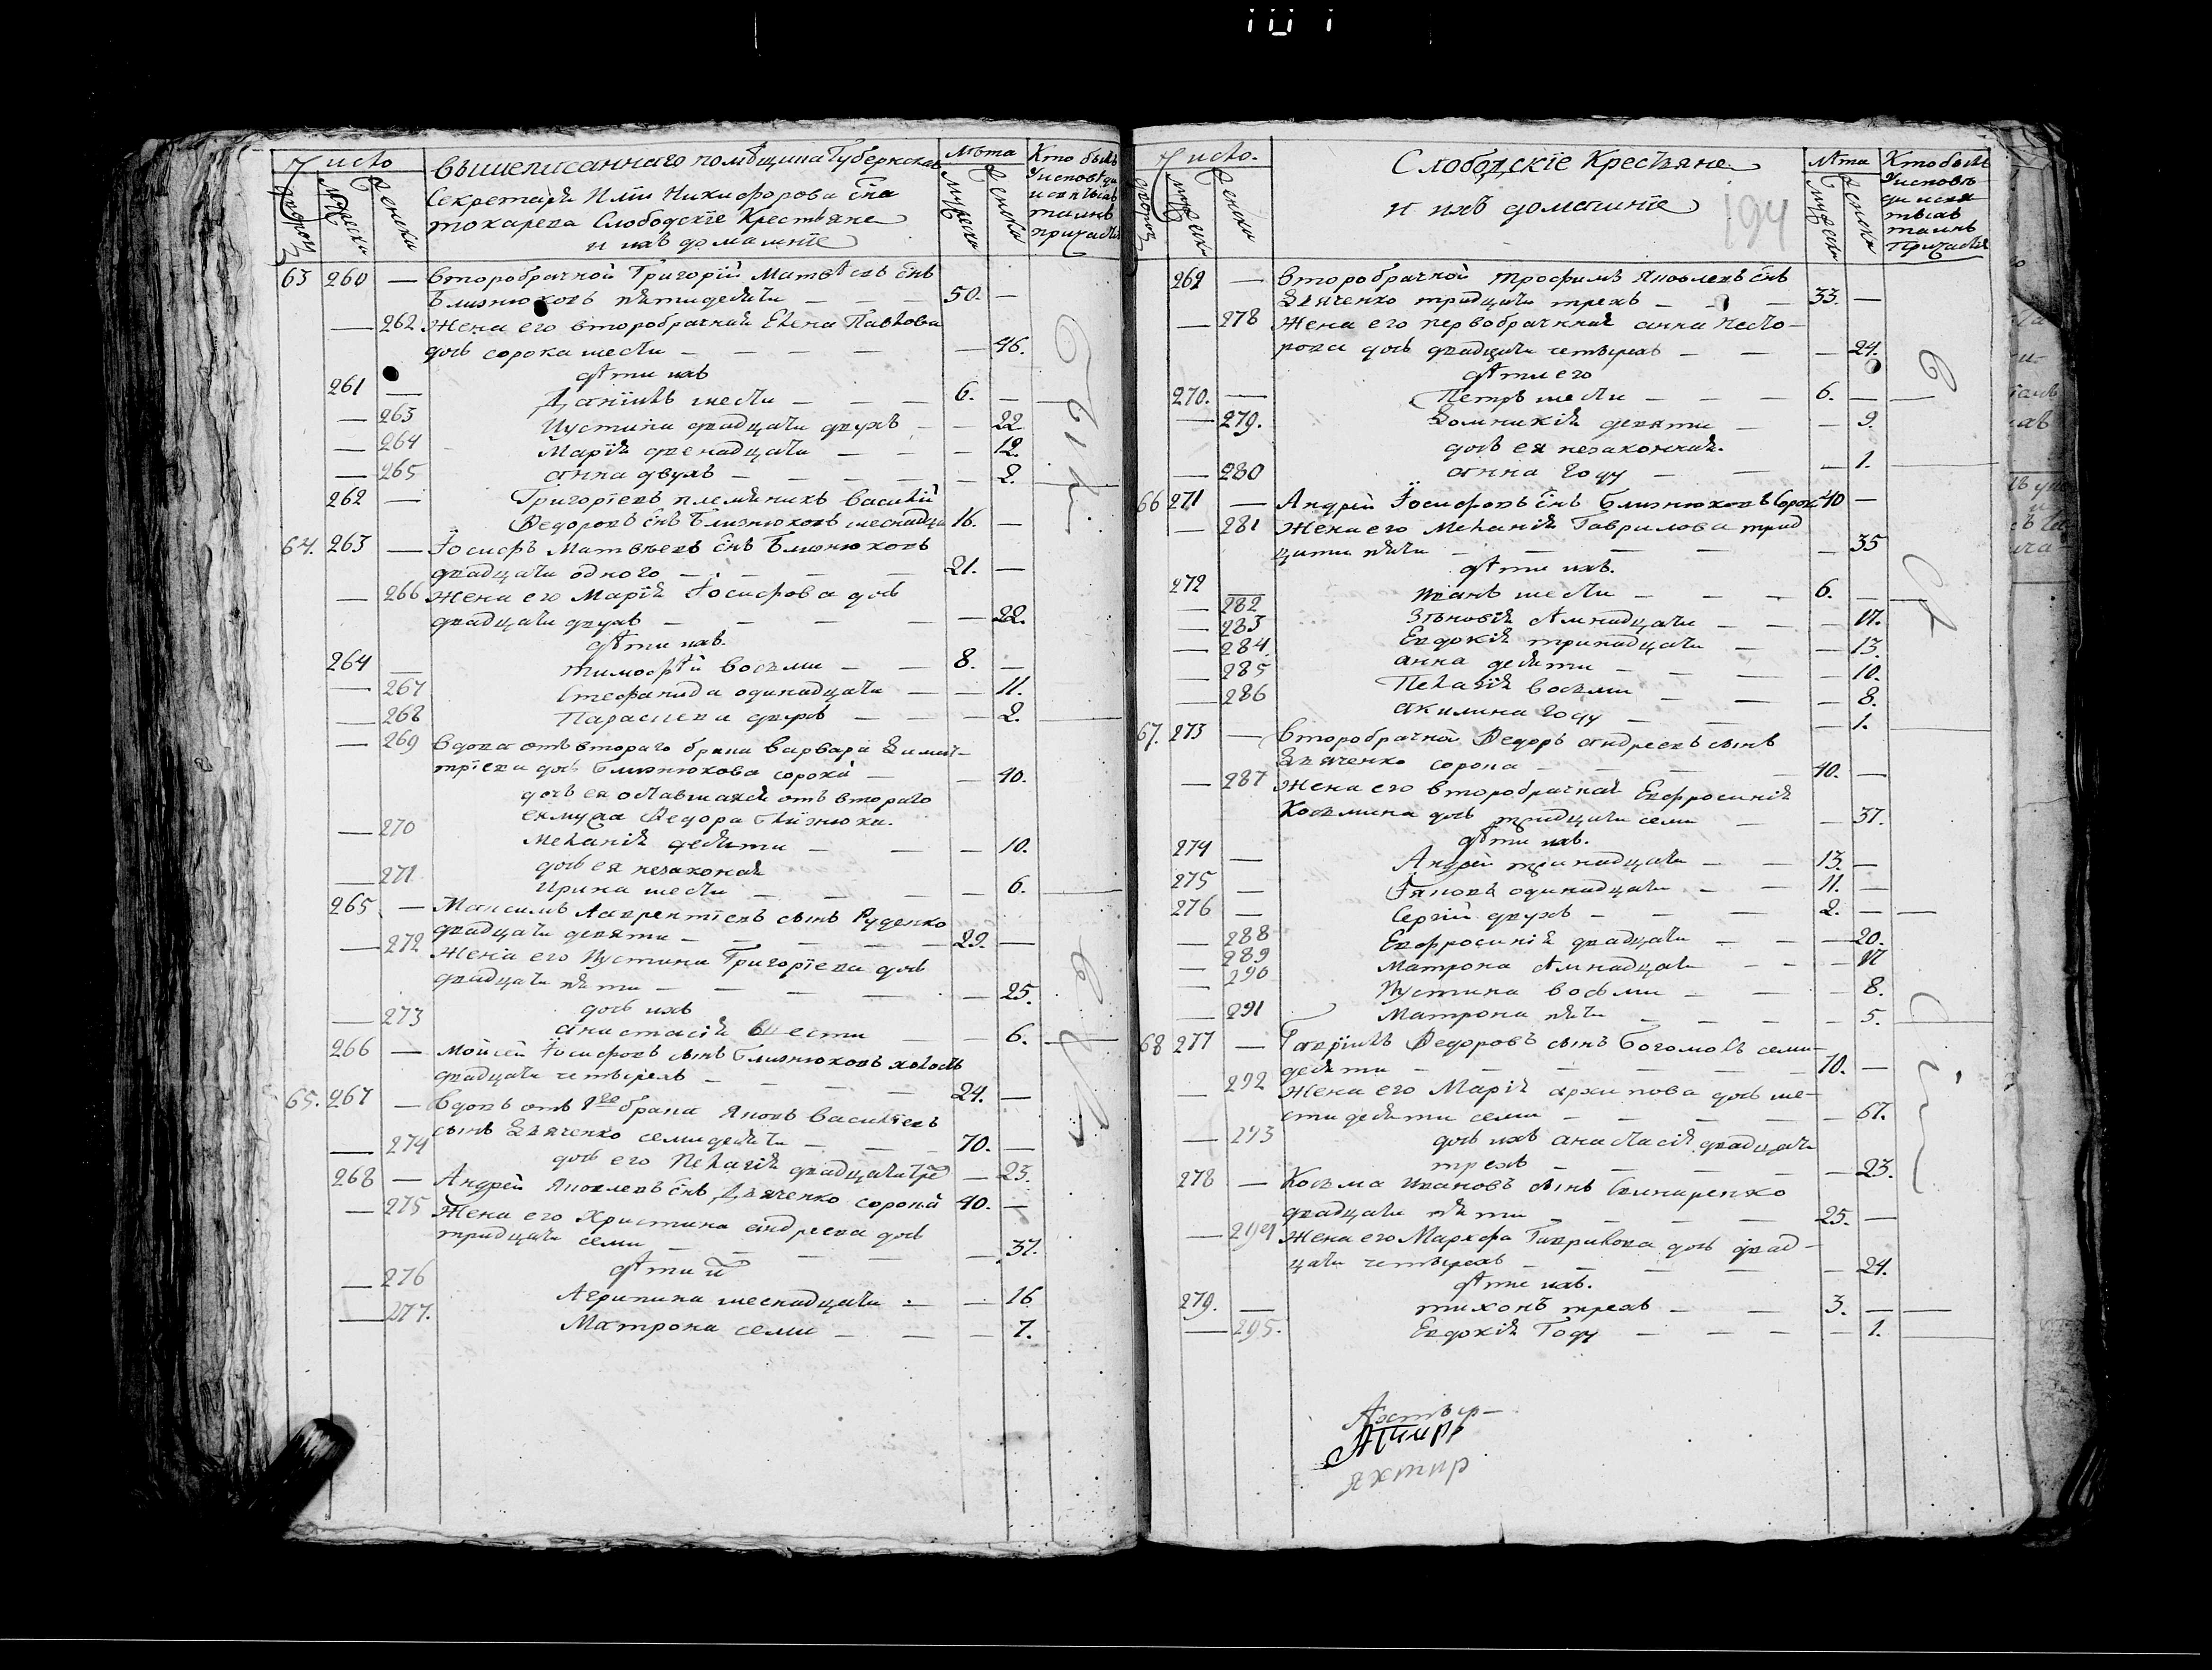 Число
Дворовъ
Мужеска
Женска
вышеписаннаго помѣщика Губернскаго
Секретаря Иліи Никифорова сна
токарева Слободскіе Крестьяне
и ихъ домашніе
Лѣта
Мужеска
Женска
Кто былъ
у исповѣди
и святыхъ
таинъ
причастія
63 260 — второбрачной Григорій Матвѣевъ снъ
Близнюковъ пятидесяти — — — 50. —
— 262 Жена его второбрачная Елена Павлова
дочь сорока шести — — — — 46.
дѣти ихъ
261 — Даніилъ шести — — — 6. —
— 263 Иустина двадцати двухъ — — 22
— 264 Марія двенадцати — — — 12.
— 265 анна двухъ — — — — 2.
262 — Григоріевъ племянникъ Василій
Ѳедоровъ снъ Близнюковъ шеснадцати 16. —
64. 263 — Іосифъ Матвѣевъ снъ Близнюковъ
двадцати одного — — — — 21. —
— 266 Жена его Марія Іосифова дочь
двадцати двухъ — — — — — 22.
дѣти ихъ.
264 — тимофѣй восьми — — 8. —
— 267 Стефанида одинадцати — — 11.
— 268 Параскева двухъ — — — 2.
— 269 Вдова отъ втораго брака варвара Димит-
тріева дочь Близнюкова сорока — — 40.
дочь ея оставшаяся отъ втораго
ея мужа Ѳедора Близнюка.
— 270 Меланія десяти — — — 10.
дочь ея незаконая
— 271 Ирина шести — — — — 6.
265 — Максимъ Лаврентіевъ сынъ Руденко
двадцати девяти — — — — 29. —
— 272 Жена его Иустина Григоріева дочь
двадцати пяти — — — — — 25.
дочь ихъ
— 273 анастасія шести — — 6.
266 — Мойсей Іосифовъ сынъ Близнюковъ холостъ
двадцати четырехъ — — — — 24. —
65. 267 — Вдовъ отъ 1го брака Яковъ Васильевъ
сынъ Дяченко семидесяти — — 70. —
— 274 дочь его Пелагія двадцати тре — 23.
268 — Андрей Яковлевъ снъ Дяченко сорока 40. —
— 275 Жена его Христина андреева дочь
тридцати семи — — — — 37.
дѣти ихъ
— 276 Агрипина шеснадцати — — 16
— 277. Матрона семи — — — 7.
Число.
дворовъ
мужеска
Женска
Слободскіе Крестьяне
и ихъ домашніе
194
Лѣта
мужеска
Женска
Кто былъ
у исповѣ
ди и свя
тыхъ
таинъ
Причастія
269 — второбрачной трофимъ Яковлевъ снъ
Дяченко тридцати трехъ — — — 33. —
— 278 Жена его первобрачная анна несто-
рова дочь двадцати четырехъ — — — 24.
дѣти его
270. — Петръ шести — — — 6. —
— 279. Домникія девяти — — 9.
дочь ея незаконная.
— 280 анна году — — — 1.
66 271 — Андрей Іосифовъ снъ Близнюковъ Сорока 40 —
— 281 Жена его Меланія Гаврилова трид
цати пяти — — — — — 35
дѣти ихъ.
272 — иванъ шести — — — 6. —
— 282 Зѣновія семнадцати — — — 17.
— 283 Евдокія тринадцати — — 13.
— 284 анна десяти — — — — 10.
— 285 Пелагія восьми — — — 8.
— 286 акилина году — — — 1.
67. 273 — второбрачной Ѳедоръ андреевъ сынъ
Дяченко сорока — — — — 40. —
— 287 Жена его второбрачная Евфросинія
Козьмина дочь тридцати семи — — 37.
дѣти ихъ.
274 — Андрей тринадцати — — 13. —
275 — Іяковъ одинадцати — — 11. —
276 — Сергій двухъ — — — 2. —
— 288 Евфросинія двадцати — — — 20.
— 289 Матрона семнадцати — — — 17
— 290 Иустина восьми — — — 8.
— 291 Матрона пяти — — — — 5.
68 277 — Гавріилъ Ѳедоровъ сынъ Богомолъ семи-
десяти — — — — — 70. —
— 292 Жена его Марія архипова дочь ше-
стидесяти семи — — — — 67.
— 293 дочь ихъ анастасія двадцати
трехъ — — — — 23.
278 — Козьма ивановъ сынъ
двадцати пяти — — — — 25. —
— 294 Жена его Марфа Гаврилова дочь двад-
цати четырехъ — — — — 24.
дѣти ихъ.
279. — тихонъ трехъ — — 3. —
— 295. Евдокія Году — — — — 1.